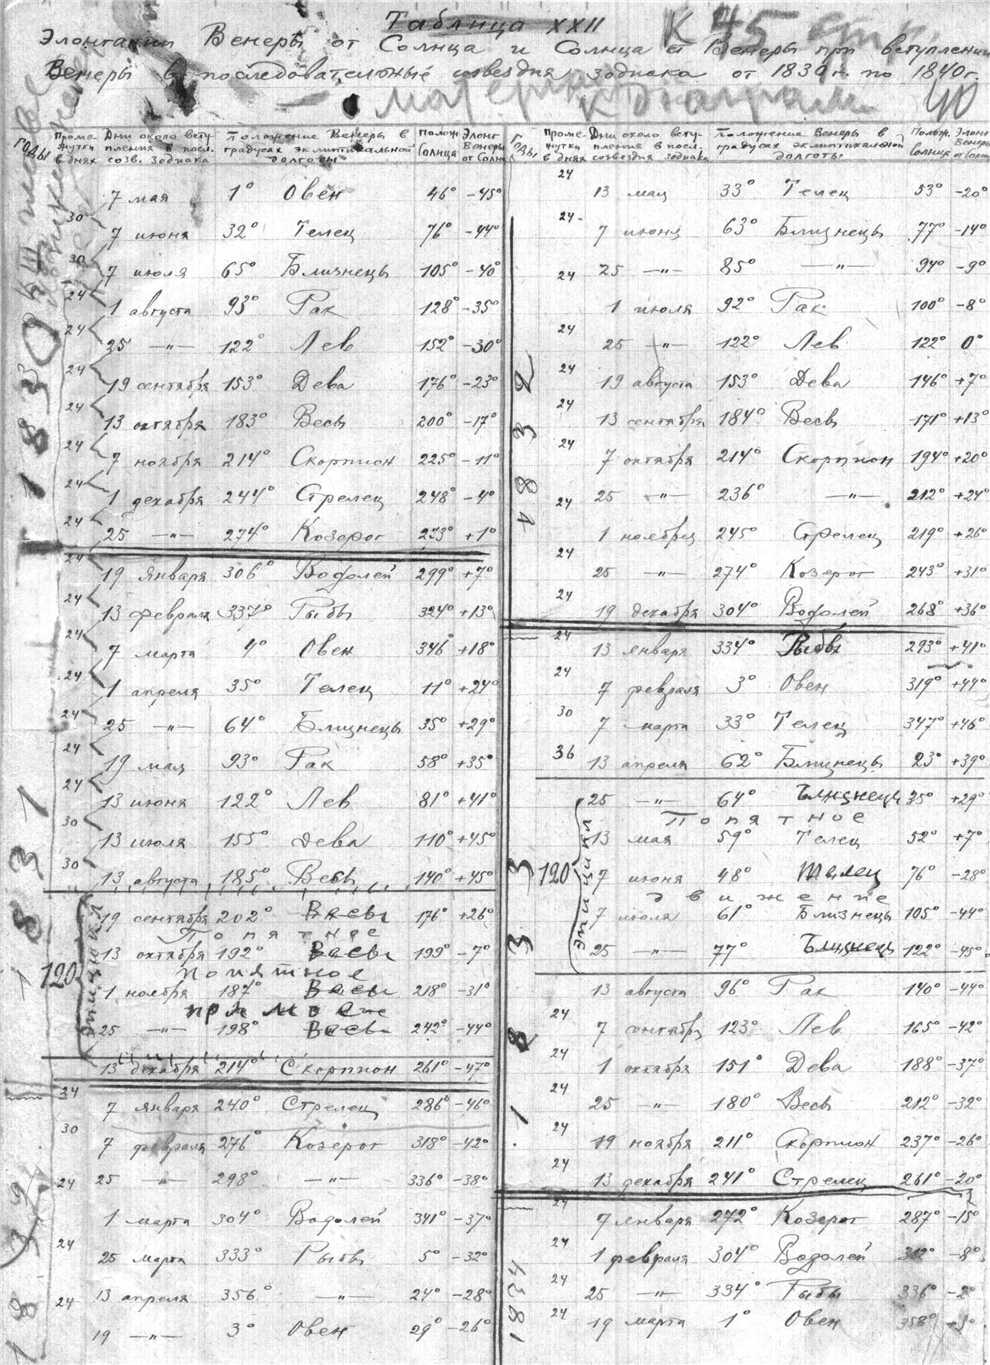 Таблица XXII
К 45
Элонгации Венеры от Солнца и Солнца от Венеры при вступлении
Венеры в последовательные созвездия зодиака от 1830 г. по 1840 г.
40
годы Промежутки в днях Дни около вступления в посл. созв. зодиака Положение Венеры в градусах эклиптикальной долготы Полож. Солнца Элонг. Венеры от Солнца
1830
7 мая 1° Овен 46° -45°
30
7 июня 32° Телец 76° -44°
30
7 июля 65° Близнецы 105° -40°
24
1 августа 93° Рак 128° -35°
24
25 —"— 122° Лев 152° -30°
24
19 сентября 153° Дева 176° -23°
24
13 октября 183° Весы 200° -17°
24
7 ноября 214° Скорпион 225° -11°
24
1 декабря 244° Стрелец 248° -4°
24
25 —"— 274° Козерог 273° +1°
24
1831
19 января 306° Водолей 299° +7°
24
13 февраля 337° Рыбы 324° +13°
24
7 марта 4° Овен 346° +18°
24
1 апреля 35° Телец 11° +24°
24
25 —"— 64° Близнецы 35° +29°
24
19 мая 93° Рак 58° +35°
24
13 июня 122° Лев 81° +41°
30
13 июля 155° Дева 110° +45°
30
13 августа 185° Весы 140° +45°
120 эпицикл
19 сентября 202° Весы 176° +26°
Попятное
13 октября 192° Весы 199° -7°
попятное
1 ноября 187° Весы 218° -31°
прямое
25 —"— 198° Весы 242° -44°
13 декабря 214° Скорпион 261° -47°
24
7 января 240° Стрелец 286° -46°
30
7 февраля 276° Козерог 318° -42°
24 25 —"— 298° —"— 336° -38°
1 марта 304° Водолей 341° -37°
24
25 марта 333° Рыбы 5° -32°
24 13 апреля 356° —"— 24° -28°
19 —"— 3° Овен 29° -26°
Годы Промежутки в днях Дни около вступления в посл. созвездия зодиака Положение Венеры в градусах эклиптикальной долготы Полож. Солнца Элонг. Венеры от Солнца
1832
24
13 мая 33° Телец 53° -20°
24
7 июня 63° Близнецы 77° -14°
24 25 —"— 85° —"— 94° -9°
1 июля 92° Рак 100° -8°
24
25 —"— 122° Лев 122° 0°
24
19 августа 153° Дева 146° +7°
24
13 сентября 184° Весы 171° +13°
24
7 октября 214° Скорпион 194° +20°
24 25 —"— 236° —"— 212° +24°
1 ноября 245° Стрелец 219° +26°
24
25 —"— 274° Козерог 243° +31°
24
19 декабря 304° Водолей 268° +36°
24
1833
13 января 334° Рыбы 293° +41°
24
7 февраля 3° Овен 319° +44°
30
7 марта 33° Телец 347° +46°
36
13 апреля 62° Близнецы 23° +39°
120 эпицикл
25 —"— 64° Близнецы 35° +29°
Попятное
13 мая 59° Телец 52° +7°
7 июня 48° Телец 76° -28°
движение
7 июля 61° Близнецы 105° -44°
25 —"— 77° Близнецы 122° -45°
13 августа 96° Рак 140° -44°
24
7 сентября 123° Лев 165° -42°
24
1 октября 151° Дева 188° -37°
24
25 —"— 180° Весы 212° -32°
24
19 ноября 211° Скорпион 237° -26°
24
13 декабря 241° Стрелец 261° -20°
24
1834
7 января 272° Козерог 287° -15°
24
1 февраля 304° Водолей 312° -8°
24
25 —"— 334° Рыбы 336° -2°
24
19 марта 1° Овен 358° +3°